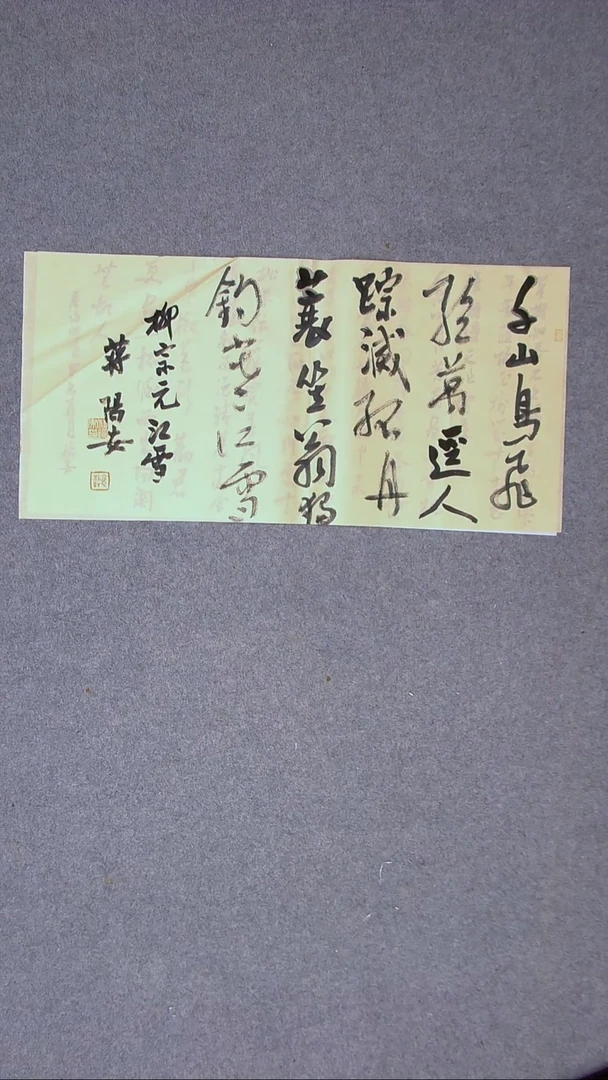 千山鳥飛
絕萬逕人
踪滅孤舟
蓑笠翁独
釣寒江雪
柳宗元江雪
蒋陽安